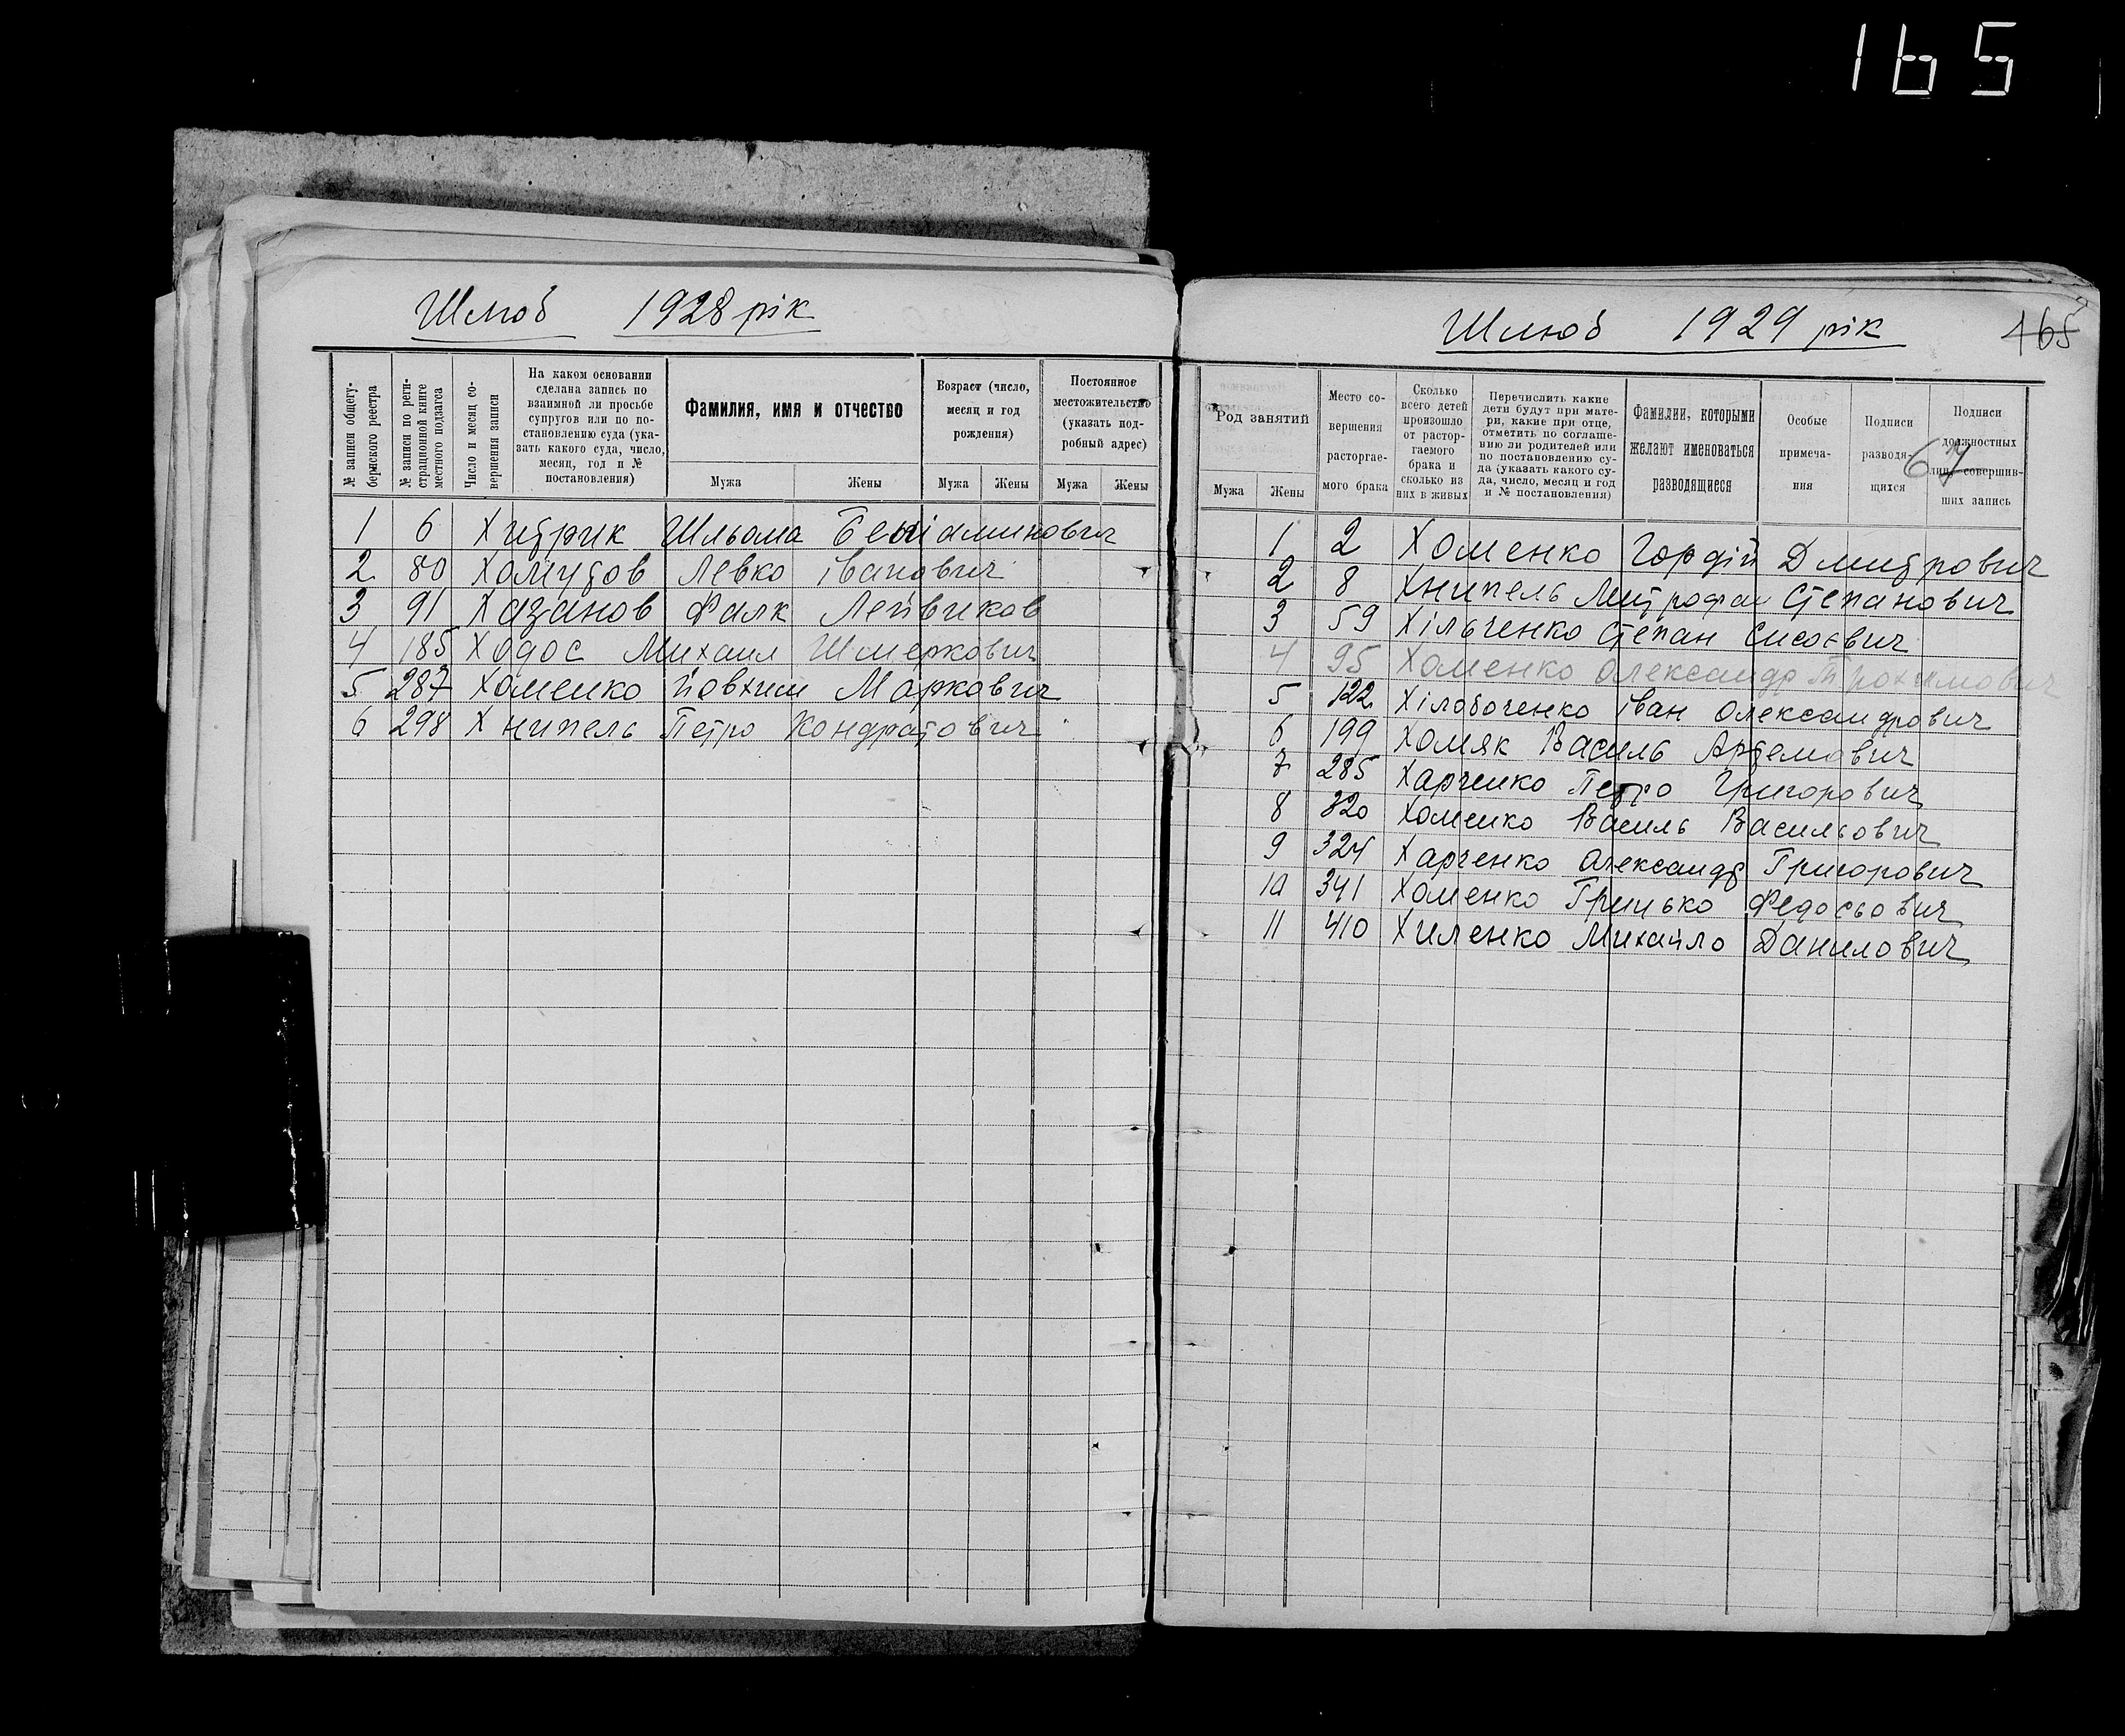 165
Шлюб 1928 рік
№ записи общегубернского реестра
№ записи по регистрационной книге местного подзагса
Число и месяц совершения записи
На каком основании
сделана запись по
взаимной ли просьбе
супругов или по по-
становлению суда (ука-
зать какого суда, число,
месяц, год и №
постановления)
Фамилия, имя и отчество
Мужа Жены
Возраст (число,
месяц и год
рождения)
Мужа Жены
Постоянное
местожительство
(указать под-
робный адрес)
Мужа Жены
1 6 Хитрик Шльома Беніаминович
2 80 Хомутов Левко Іванович
3 91 Хазанов Фалк Лейвиков
4 185 Ходос Михаил Шмеркович
5 287 Хоменко Йовхим Маркович
6 298 Хнипель Петро Кондратович
Шлюб 1929 рік
165
Род занятий
Мужа Жены
Место со-
вершения
расторгае-
мого брака
Сколько
всего детей
произошло
от растор-
гаемого
брака и
сколько из
них в живых
Перечислить какие
дети будут при мате-
ри, какие при отце,
отметить по соглаше-
нию ли родителей или
по постановлению су-
да (указать какого су-
да, число, месяц и год
и № постановления)
Фамилии, которыми
желают именоваться
разводящиеся
Особые
примеча-
ния
Подписи
разводя-
щихся
Подписи
должностных
лиц, совершив-
ших запись
1 2 Хоменко Гордій Дмитрович
2 8 Хнипель Митрофан Степанович
3 59 Хільченко Степан Сисоєвич
4 95 Хоменко Олександр Трохимович
5 122 Хілобоченко Іван Олександрович
6 199 Хомяк Василь Артемович
7 285 Харченко Петро Григорович
8 320 Хоменко Василь Васильович
9 324 Харченко Олександр Григорович
10 341 Хоменко Грицько Федосьович
11 410 Хиленко Михайло Данилович